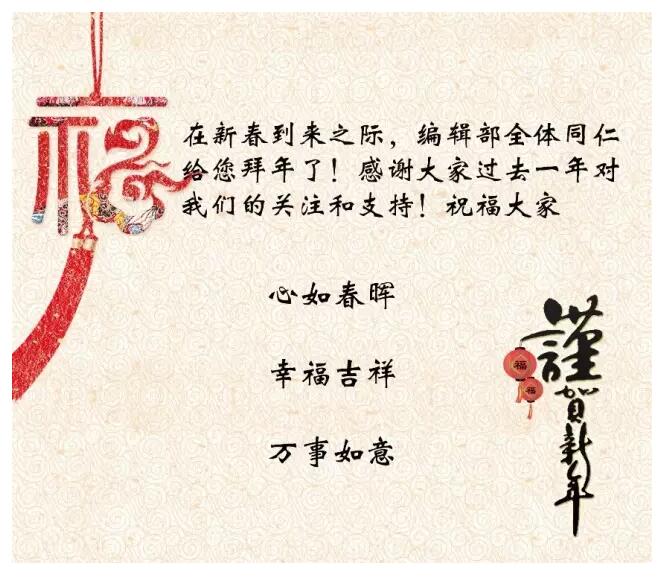 福
在新春到来之际，编辑部全体同仁
给您拜年了！感谢大家过去一年对
我们的关注和支持！祝福大家
心如春晖
幸福吉祥
万事如意
謹賀新年
福
福